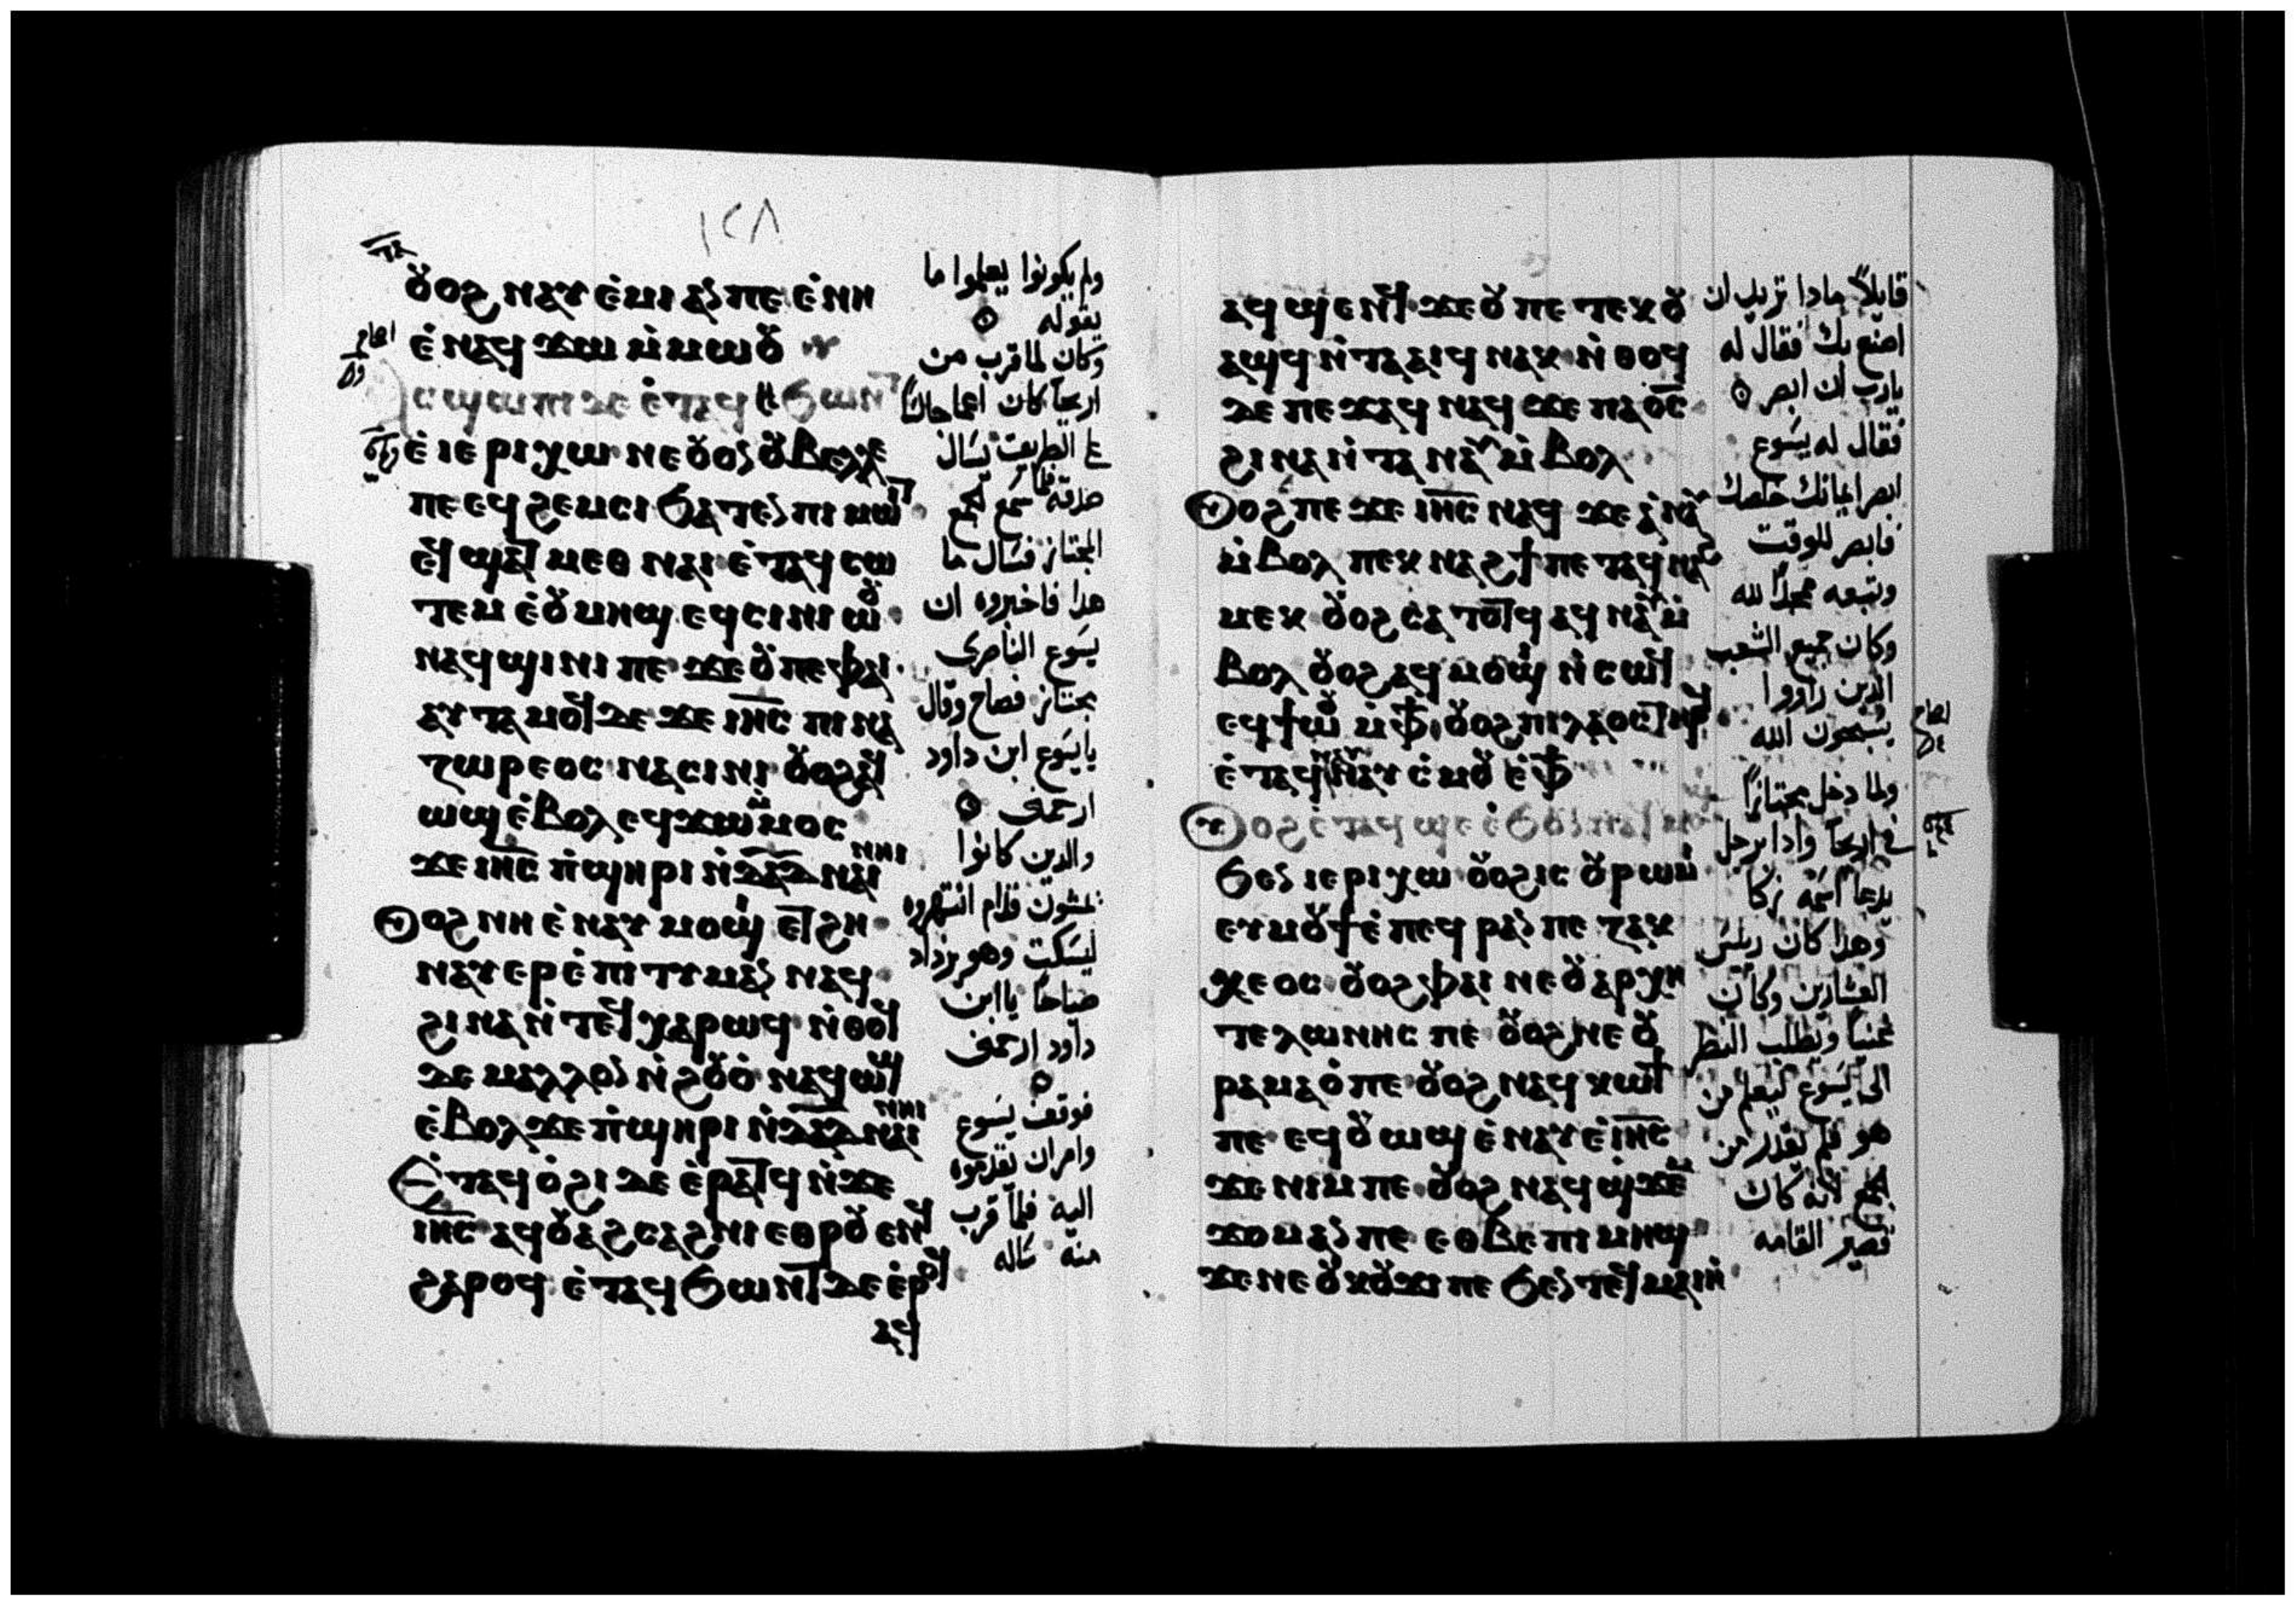 ١٢٨
ⲟⲩⲟϩ ⲛⲁⲩⲉ̇ⲙⲓ ⲁⲛ ⲡⲉ ⲉ̇ⲛⲏ
ⲉ̇ⲛⲁϥϫⲱ ⲙ̇ⲙⲱⲟⲩ
ⲁⲥϣⲱⲡⲓ ⲇⲉ ⲉ̇ⲧⲁϥϧⲱⲛⲧ
ⲉ̇ⲓⲉⲣⲓⲭⲱ ⲛⲉ ⲟⲩⲟⲛ ⲟⲩⲃⲉⲗⲗⲉ
ⲡⲉ ⲉϥϩⲉⲙⲥⲓ ϧⲁⲧⲉⲛ ⲡⲓⲙⲱⲓⲧ
ⲉϥϣⲁⲧ ⲙⲉⲑⲛⲁⲓ ⲉ̇ⲧⲁϥⲥⲱ
ⲧⲉⲙ ⲉ̇ⲟⲩⲙⲏϣ ⲉϥⲥⲓⲛⲓⲱⲟⲩ
ⲛⲁϥϣⲓⲛⲓ ⲡⲉ ϫⲉ ⲟⲩ ⲡⲉ ⲫⲁⲓ
ⲁⲩⲧⲁⲙⲟϥ ⲇⲉ ϫⲉ ⲓⲏⲥ ⲡⲓⲛⲁ
ⲍⲱⲣⲉⲟⲥ ⲛⲁⲥⲓⲛⲓ ⲟⲩⲟϩ ⲁϥ
ⲱϣ ⲉ̇ⲃⲟⲗ ⲉϥϫⲱ ⲙ̇ⲙⲟⲥ
ϫⲉ ⲓⲏⲥ ⲡ̇ϣⲏⲣⲓ ⲛ̇ⲇⲁⲇ ⲛⲁⲓ ⲛⲏⲓ
ⲟⲩⲟϩ ⲛⲏ ⲉ̇ⲛⲁⲩⲙⲟϣⲓ ⲉⲧϩⲏ
ⲛⲁⲩⲉⲣⲉ̇ⲡⲓⲧⲓⲙⲁⲛ ⲛⲁϥ
ϩⲓⲛⲁ ⲛ̇ⲧⲉϥⲭⲁⲣⲱϥ ⲛ̇ⲑⲟϥ
ⲇⲉ ⲙⲁⲗⲗⲟⲛ ⲛ̇ϩⲟⲩⲟ̇ ⲛⲁϥⲱϣ
ⲉ̇ⲃⲟⲗ ϫⲉ ⲡ̇ϣⲏⲣⲓ ⲛ̇ⲇⲁⲇ ⲛⲁⲓ ⲛⲏⲓ
ⲉ̇ⲧⲁϥⲟ̇ϩⲓ ⲇⲉ ⲉ̇ⲣⲁⲧϥ ⲛ̇ϫⲉ
ⲓⲏⲥ ⲁϥⲟⲩⲁϩⲥⲁϩⲛⲓ ⲉⲑⲣⲟⲩⲉⲛϥ
ϩⲁⲣⲟϥ ⲉ̇ⲧⲁϥϧⲱⲛⲧ ⲇⲉ ⲉ̇ⲣⲟϥ
ⲁϥ
ولم يكونوا يعلموا ما
يقوله
وكان لما قرب من
اريحا كان اعما جالسًا
على الطريق يسال
صدقه فلما سمع الجمع
المجتاز فسال ما
هدا فاخبروه ان
يسوع الناصرى
مجتاز فصاح وقال
يا يسوع ابن داود
ارحمنى
والدين كانوا
يمشون قدام انتهروه
ليسكت وهو يزداد
صياحًا يا ابن
داود ارحمنى
فوقف يسوع
وامر ان يقدموه
اليه فلما قرب
منه ساله
ⲁϥϣⲉⲛϥ ϫⲉ ⲟⲩ ⲡⲉⲧⲉⲕⲟⲩ
ⲁϣϥ ⲛ̇ⲧⲁⲁⲓϥ ⲛⲁⲕ ⲛ̇ⲑⲟϥ
ⲇⲉ ⲡⲉϫⲁϥ ⲛⲁϥ ϫⲉ ⲡⲁⲟ̅ⲥ̅
ϩⲓⲛⲁ ⲛ̇ⲧⲁⲛⲁⲩ ⲙ̇ⲃⲟⲗ
ⲟⲩⲟϩ ⲡⲉϫⲉ ⲓⲏⲥ ⲛⲁϥ ϫⲉ ⲁ̇ⲛⲁⲩ
ⲙ̇ⲃⲟⲗ ⲡⲉⲕⲛⲁϩϯ ⲡⲉⲧⲁϥⲛⲁϩ
ⲙⲉⲕ ⲟⲩⲟϩ ⲥⲁⲧⲟⲧϥ ⲁϥⲛⲁⲩ ⲙ̇
ⲃⲟⲗ ⲟⲩⲟϩ ⲁϥⲙⲟϣⲓ ⲛ̇ⲥⲱϥ
ⲉϥϯⲱⲟⲩ ⲙ̇ⲫϯ ⲟⲩⲟϩ ⲡⲓⲗⲁⲟⲥ ⲧⲏⲣϥ
ⲉ̇ⲧⲁϥⲛⲁⲩ ⲁⲩⲥ̇ⲙⲟⲩ ⲉ̇ⲫϯ
ⲟⲩⲟϩ ⲉ̇ⲧⲁϥϣⲉ ⲉ̇ϧⲟⲩⲛ ⲛⲁϥⲙⲟϣⲓ
ϧⲉⲛ ⲓⲉⲣⲓⲭⲱ ⲟⲩⲟϩ ⲓⲥ ⲟⲩⲣⲱⲙⲓ
ⲉⲩⲙⲟⲩϯ ⲉ̇ⲡⲉϥⲣⲁⲛ ⲡⲉ ⲍⲁⲕ
ⲭⲉⲟⲥ ⲟⲩⲟϩ ⲫⲁⲓ ⲛⲉ ⲟⲩⲁⲣⲭⲏ
ⲧⲉⲗⲱⲛⲏⲥ ⲡⲉ ⲟⲩⲟϩ ⲛⲉ ⲟⲩ
ⲣⲁⲙⲁⲟ̇ ⲡⲉ ⲟⲩⲟϩ ⲛⲁϥⲕⲱϯ
ⲡⲉ ⲉϥⲟⲩⲱϣ ⲉ̇ⲛⲁⲩ ⲉ̇ⲓⲏⲥ
ϫⲉ ⲛⲓⲙ ⲡⲉ ⲟⲩⲟϩ ⲛⲁϥϣ̇ϫⲉⲙ
ϫⲟⲙ ⲁⲛ ⲡⲉ ⲉⲑⲃⲉ ⲡⲓⲙⲏϣ
ϫⲉ ⲛⲉ ⲟⲩⲕⲟⲩϫⲓ ⲡⲉ ϧⲉⲛ ⲧⲉϥⲙⲁⲓⲏ
قايلاً مادا تريد ان
اصنع بك فقال له
يارب ان ابصر
فقال له يسوع
ابصر ايمانك خلصك
فابصر للوقت
وتبعه ممجدًا لله
وكان جميع الشعب
الدين راووا
يسبحون الله
ولما دخل مجتازًا
فى اريحا وادا برجل
يدعا اسمه زكا
وهدا كان رييس
العشارين وكان
غنيا ويطلب النظر
الى يسوع ليعلم من
هو فلم يقدر من
الجمع لانه كان
قصير القامه